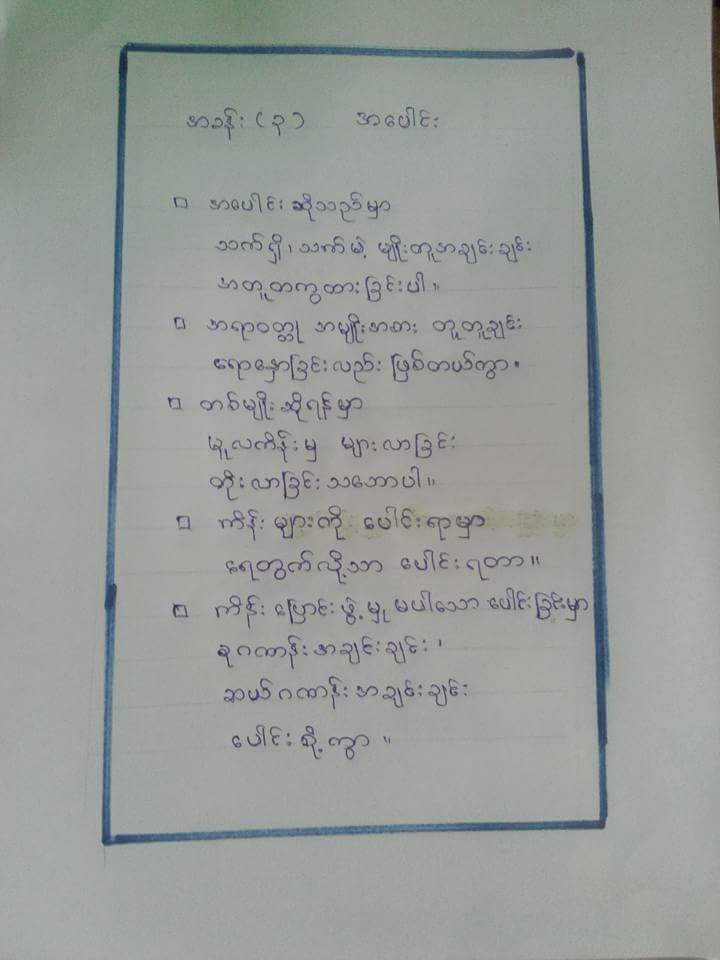 အခန်း (၃) အပေါင်း
□ အပေါင်းဆိုသည်မှာ
သက်ရှိ၊ သက်မဲ့ မျိုးတူအချင်းချင်း
အတူတကွထားခြင်းပါ။
□ အရာဝတ္ထု အမျိုးအစား တူတူချင်း
ရောနှောခြင်းလည်း ဖြစ်တယ်ကွာ။
□ တစ်မျိုးဆိုရန်မှာ
မူလကိန်းမှ များလာခြင်း
တိုးလာခြင်းသဘောပါ။
□ ကိန်းများကို ပေါင်းရာမှာ
ရေတွက်လို့သာ ပေါင်းရတာ။
□ ကိန်းပြောင်းဖွဲ့မှု မပါသော ပေါင်းခြင်းမှာ
ခုဂဏန်းအချင်းချင်း၊
ဆယ်ဂဏန်းအချင်းချင်း
ပေါင်းစို့ကွာ။